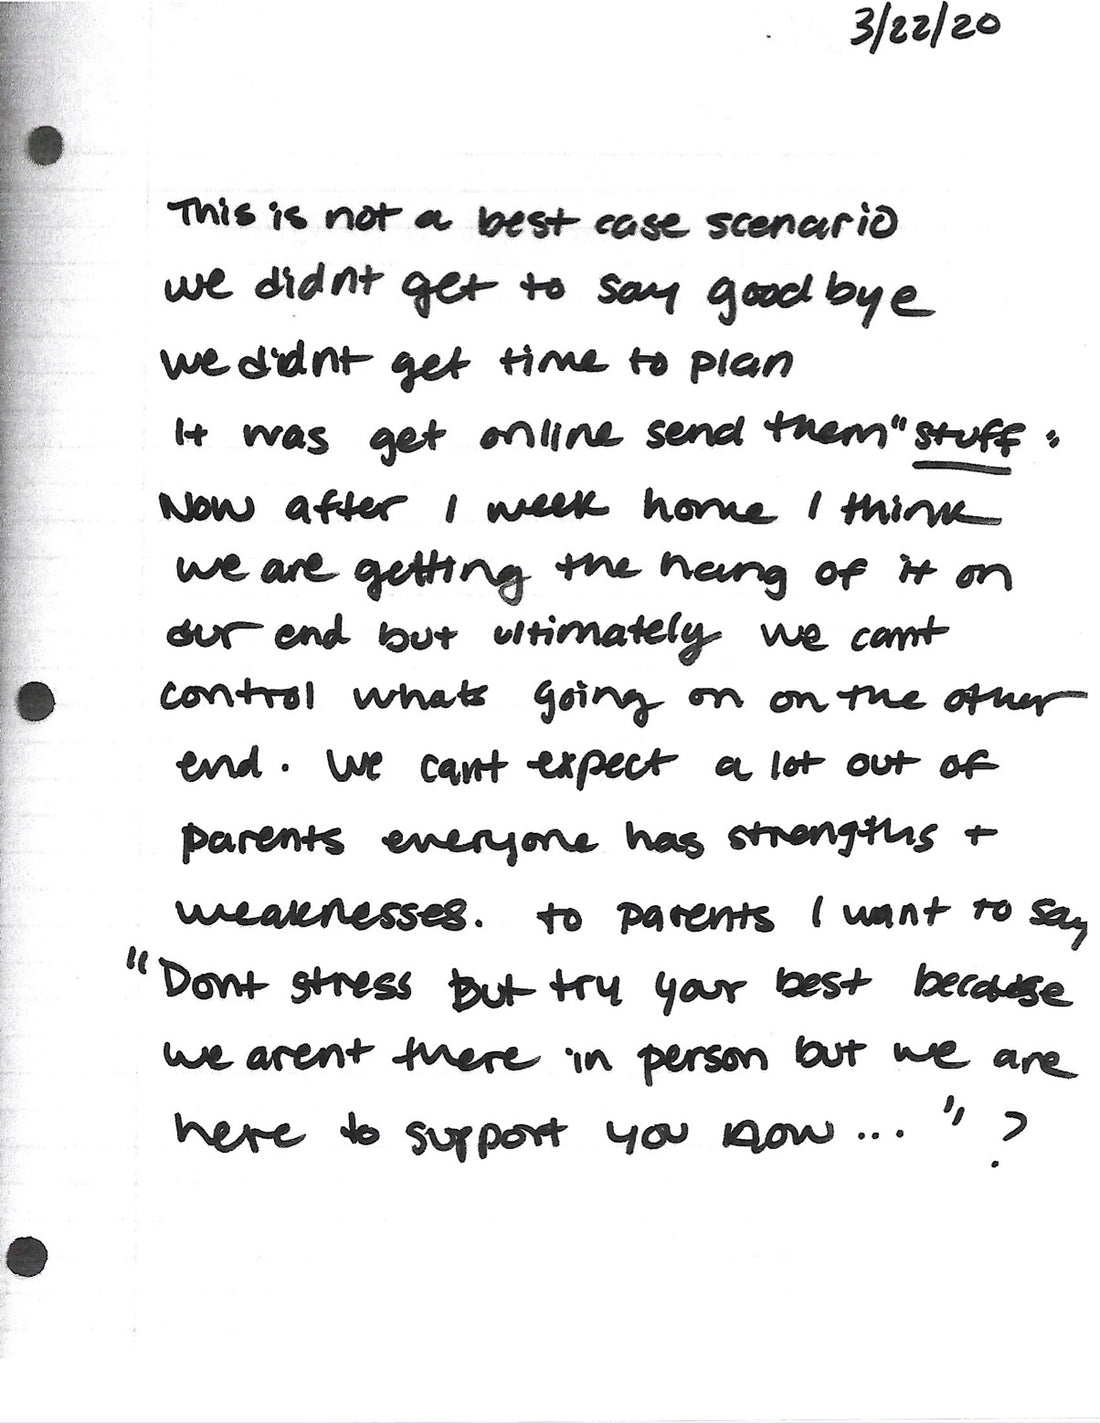 3/22/20
This is not a best case scenario
we didnt get to say goodbye
we didnt get time to plan
It was get online send them "stuff"
Now after 1 week home I think
we are getting the hang of it on
our end but ultimately we cant
control whats going on on the other
end. We cant expect a lot out of
parents everyone has strengths +
weaknesses. to parents I want to say
"Dont stress but try your best because
we arent there in person but we are
here to support you now..." ?